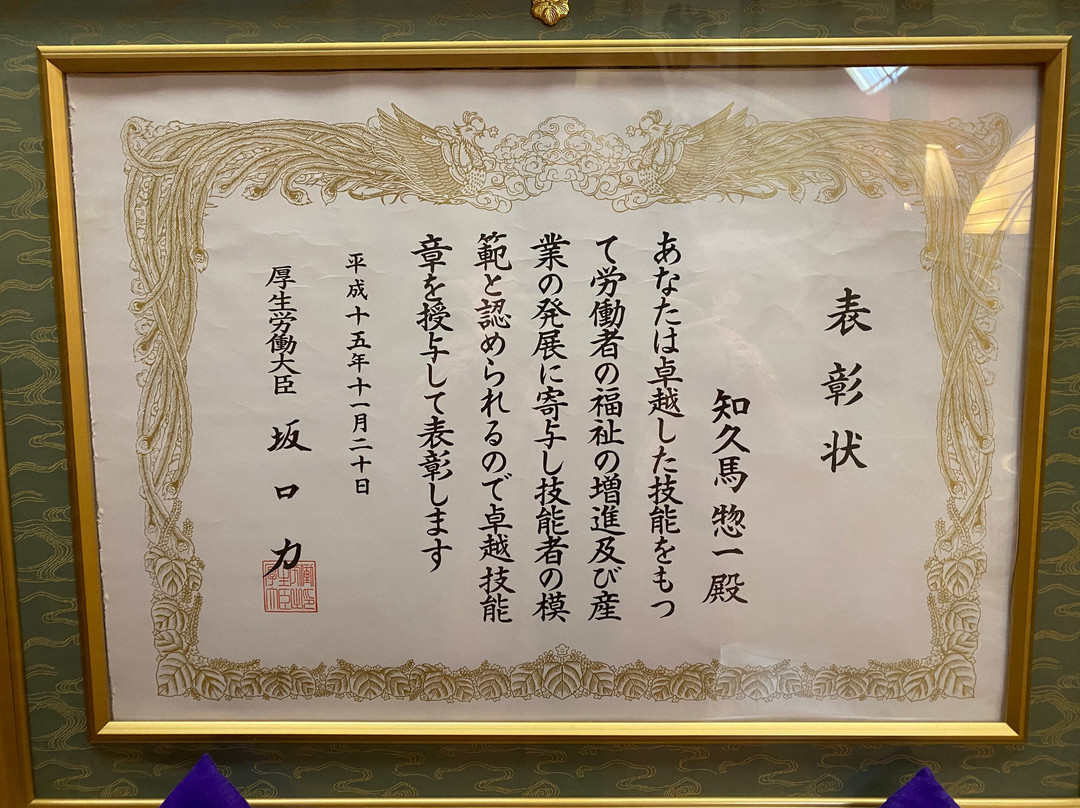 表彰状
知久馬惣一殿
あなたは卓越した技能をもつ
て労働者の福祉の増進及び産
業の発展に寄与し技能者の模
範と認められるので卓越技能
章を授与して表彰します
平成十五年十一月二十日
厚生労働大臣 坂口力